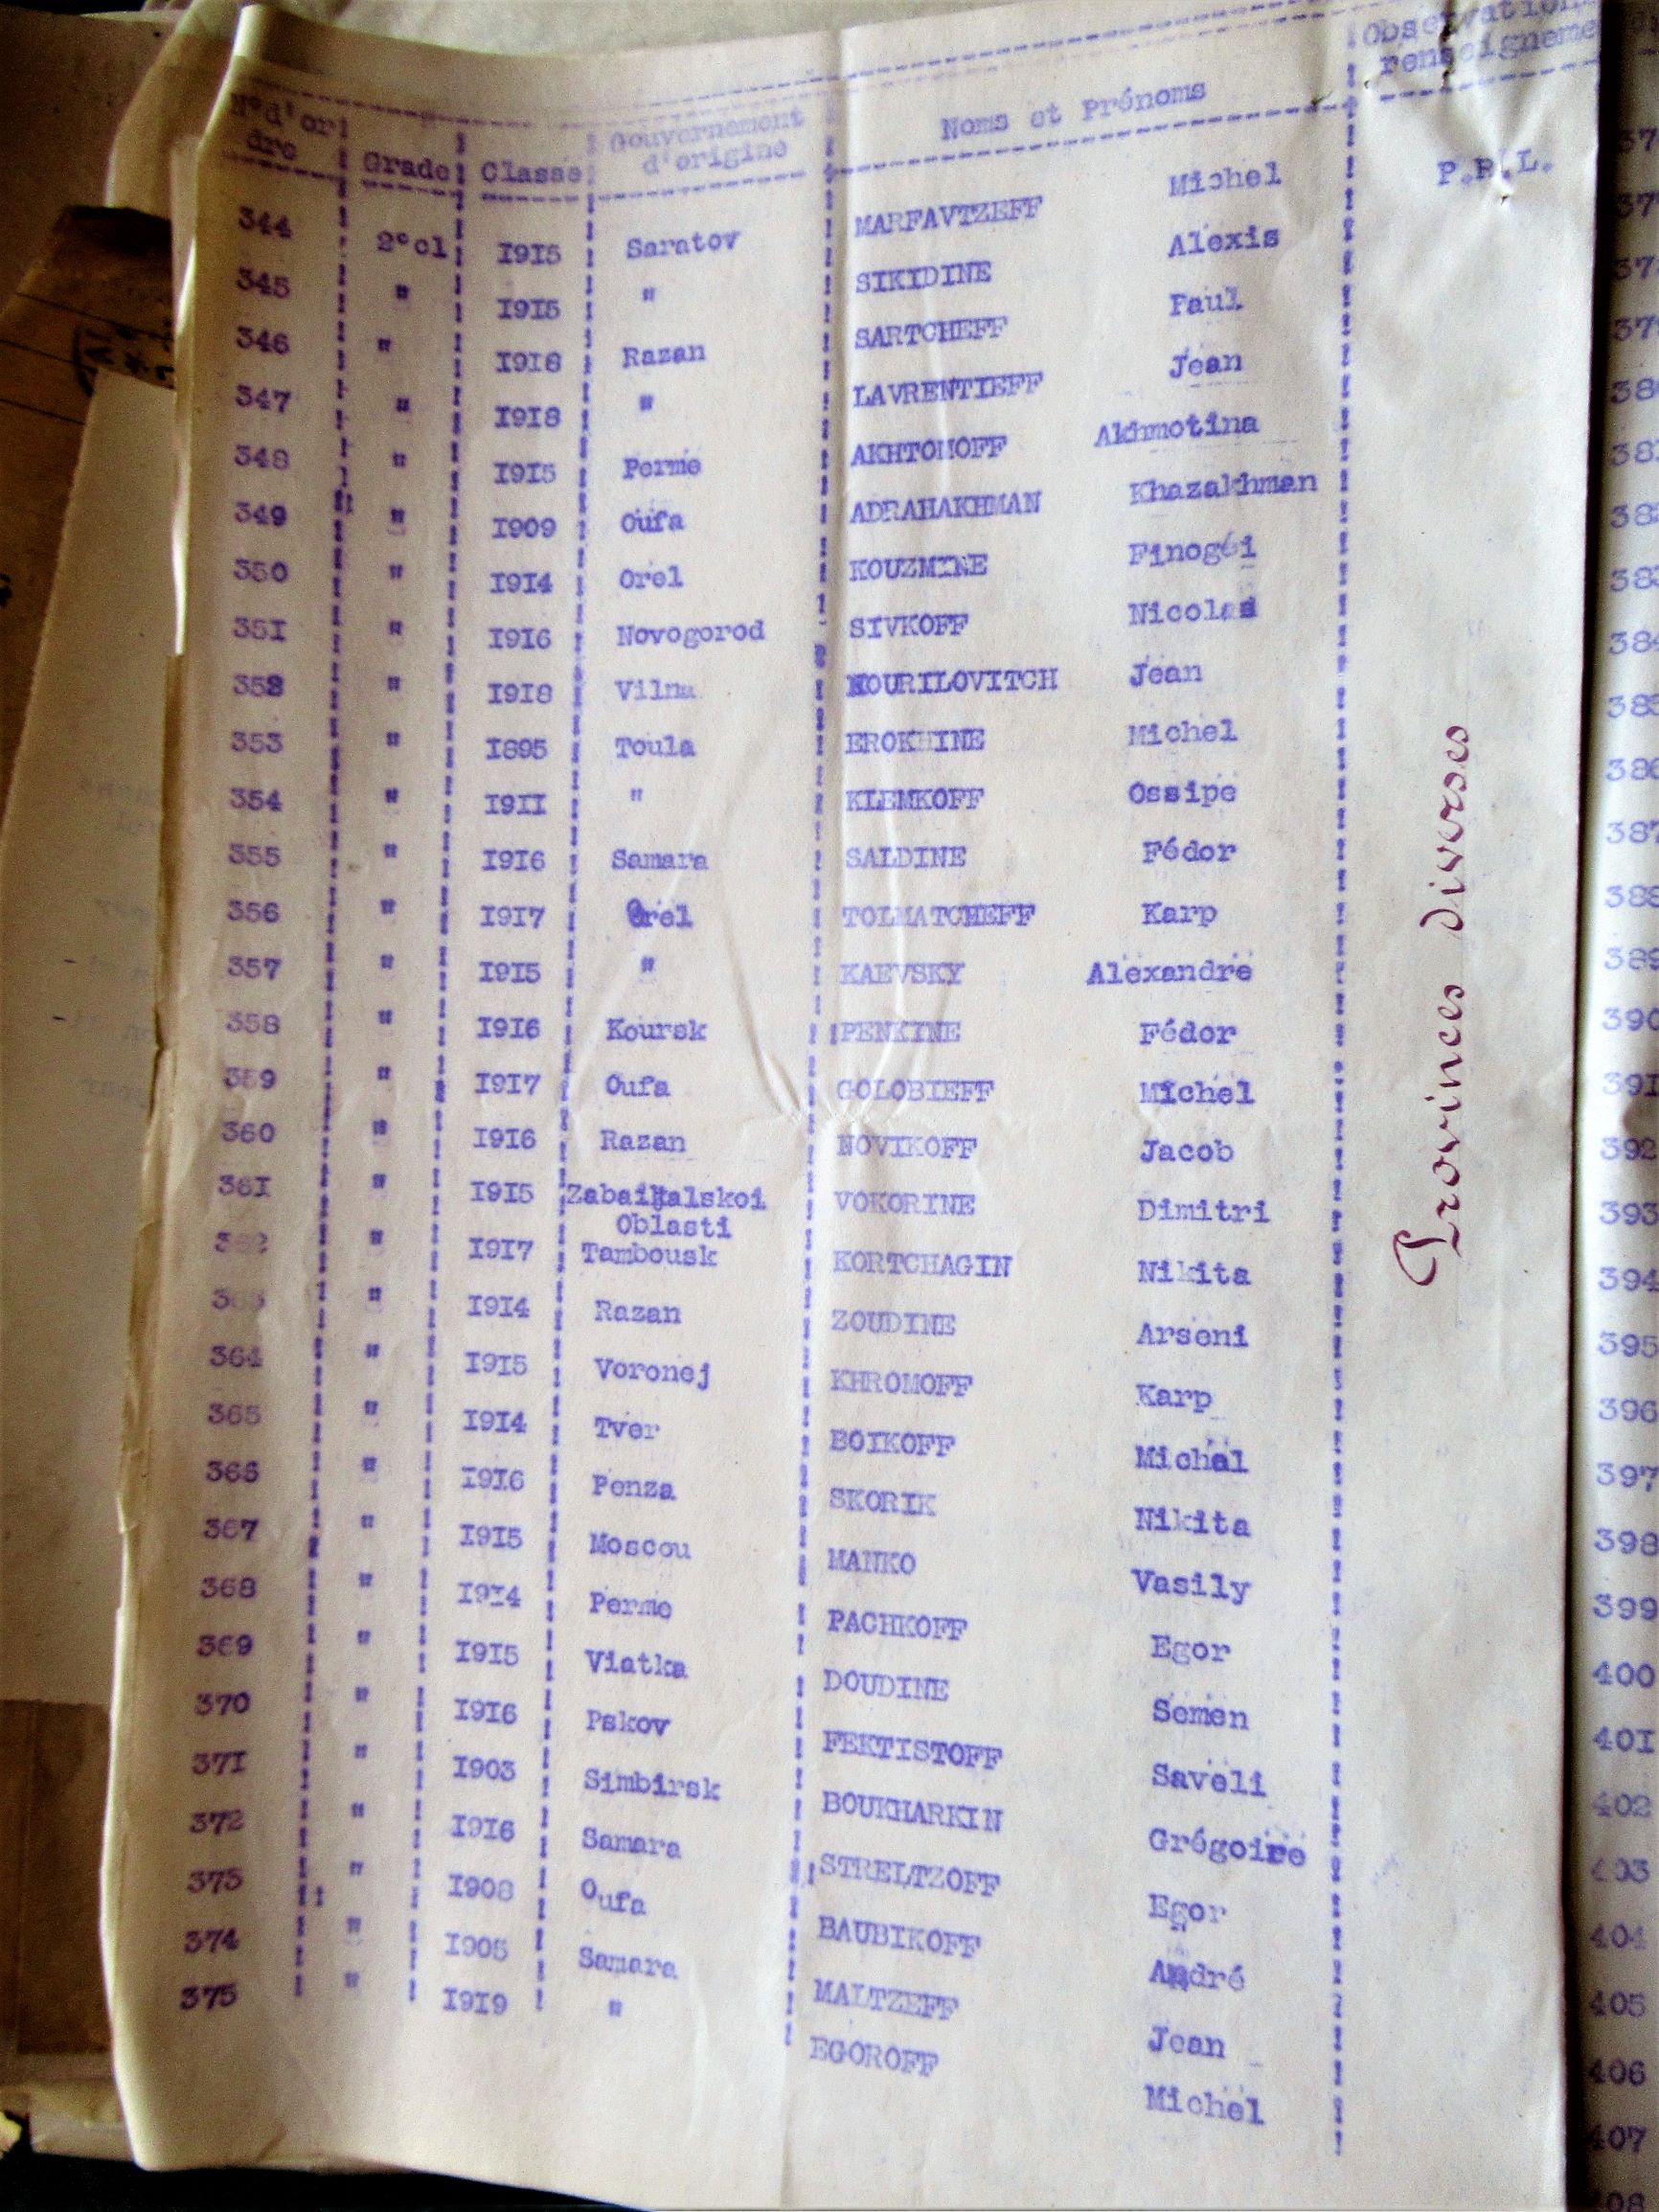 N°d'or dre Grade Classe Gouvernement d'origine Noms et Prénoms Observation renseigneme
344 2°cl I9I5 Saratov MARFAVTZEFF Michel P.R.L.
345 " I9I5 " SIKIDINE Alexis
346 " I9I6 Razan SARTCHEFF Paul
347 " I9I8 " LAVRENTIEFF Jean
348 " I9I5 Perme AKHTOMOFF Akhmotina
349 " I909 Oufa ADRAHAKHMAN Khazakhman
350 " I9I4 Orel KOUZMINE Finogéi
35I " I9I6 Novogorod SIVKOFF Nicolas
352 " I9I8 Vilna KOURILOVITCH Jean
353 " I895 Toula EROKHINE Michel
354 " I9II " KLEMKOFF Ossipe
355 " I9I6 Samara SALDINE Fédor
356 " I9I7 Orel TOLMATCHEFF Karp
357 " I9I5 " KAEVSKY Alexandre
358 " I9I6 Koursk PENKINE Fédor
359 " I9I7 Oufa GOLOBIEFF Michel
360 " I9I6 Razan NOVIKOFF Jacob
36I " I9I5 Zabaikalskoi Oblasti VOKORINE Dimitri
362 " I9I7 Tambousk KORTCHAGIN Nikita
363 " I9I4 Razan ZOUDINE Arseni
364 " I9I5 Voronej KHROMOFF Karp
365 " I9I4 Tver BOIKOFF Michel
366 " I9I6 Penza SKORIK Nikita
367 " I9I5 Moscou MANKO Vasily
368 " I9I4 Perme PACHKOFF Egor
369 " I9I5 Viatka DOUDINE Semen
370 " I9I6 Pskov FEKTISTOFF Saveli
37I " I903 Simbirsk BOUKHARKIN Grégoire
372 " I9I6 Samara STRELTZOFF Egor
373 " I908 Oufa BAUBIKOFF André
374 " I905 Samara MALTZEFF Jean
375 " I9I9 " EGOROFF Michel
Provinces diverses
390
39I
392
393
394
395
396
397
398
399
400
40I
402
403
404
405
406
407